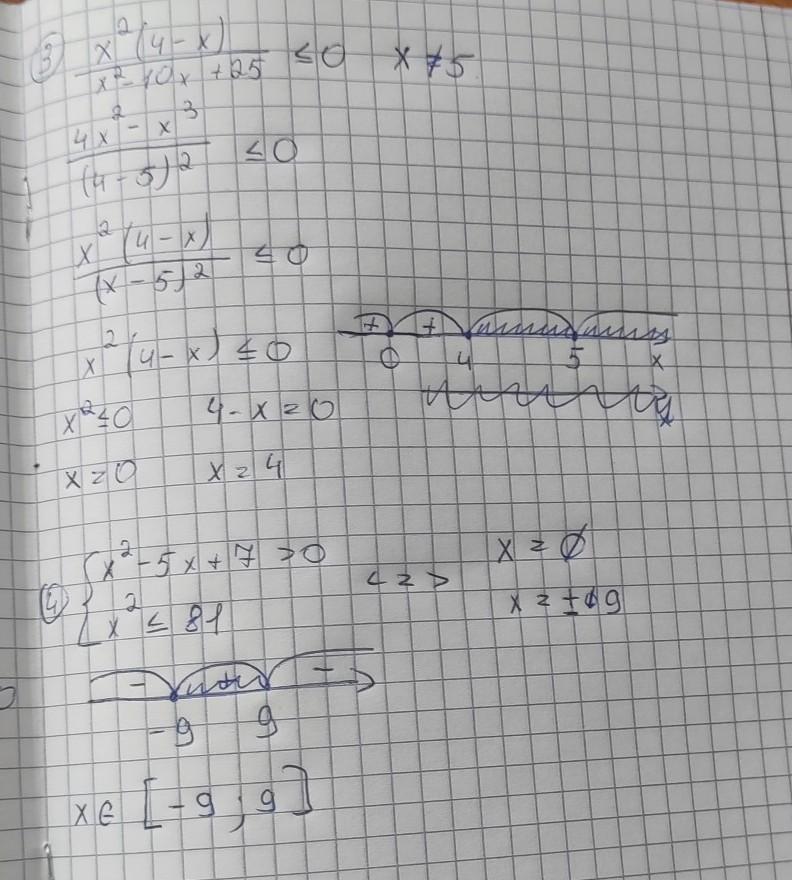 ③ x²(4-x) / x²-10x+25 ≤ 0 x ≠ 5
4x² - x³ / (4-5)² ≤ 0
x²(4-x) / (x-5)² ≤ 0
+ +
x²(4-x) ≤ 0 0 4 5 x
x² ≤ 0 4-x = 0
x = 0 x = 4
④ { x² - 5x + 7 > 0 <=> x = ∅
x² ≤ 81 x = ±9
- + -
-9 9
x ∈ [-9; 9]